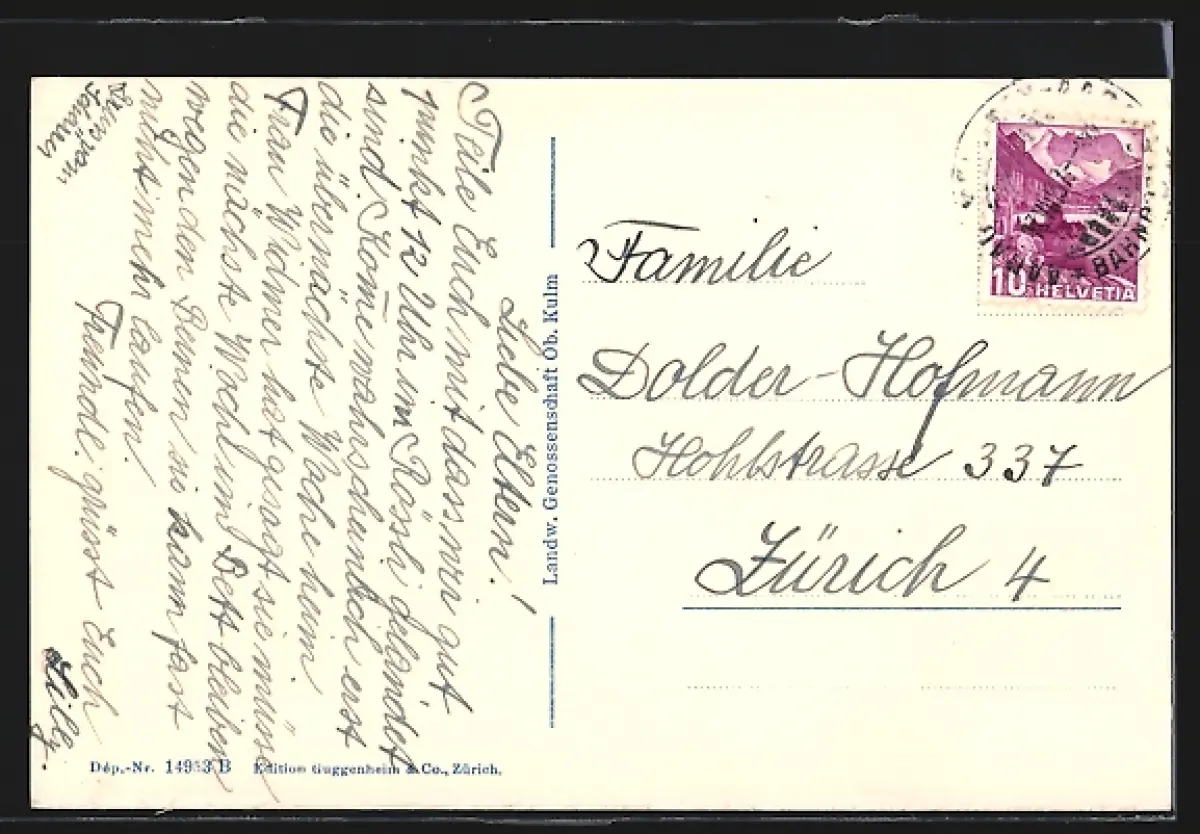 Liebe Eltern!
Teile Euch mit dass wir gut
punkt 12 Uhr im Rössli gelandet
sind. Kome wahrscheinlich erst
die übernächste Woche heim.
Frau Widmer hat gesagt sie müsse
die nächste Woche im Bett bleiben
wegen den Beinen sie kann fast
nicht mehr laufen.
Freundl. grüsst Euch
Lilly.
Landw. Genossenschaft Ob. Kulm
Dép.-Nr. 14953 B Edition Guggenheim & Co., Zürich.
10 HELVETIA
Familie
Dolder-Hofmann
Hohlstrasse 337
Zürich 4